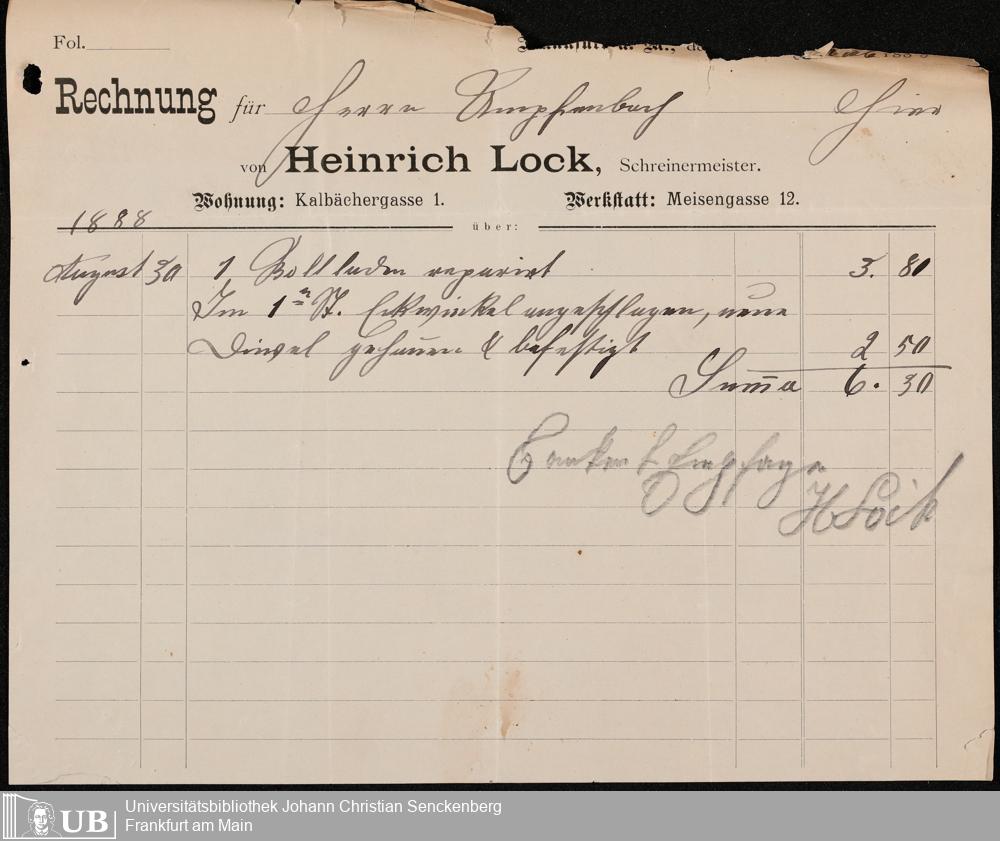 Fol.
Frankfurt a. M., de 188
Rechnung für Herrn Umpfenbach Hier
von Heinrich Lock, Schreinermeister.
Wohnung: Kalbächergasse 1. Werkstatt: Meisengasse 12.
1888 über:
August 30 1 Rollladen reparirt 3. 80
Im 1ten St. Eckwinkel angeschlagen, neue
gehauen & befestigt 2 50
Summa 6. 30
Empfangen
H Lock
UB Universitätsbibliothek Johann Christian Senckenberg
Frankfurt am Main